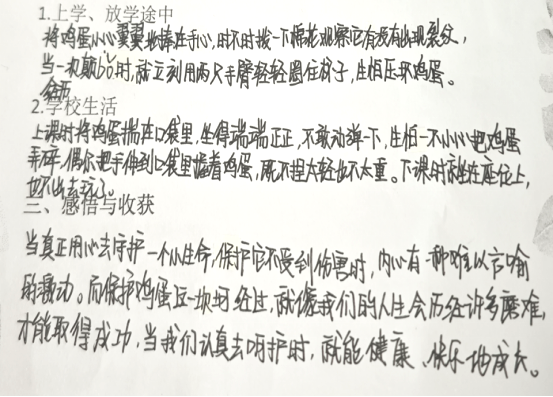 1.上学、放学途中
将鸡蛋小心翼翼地捧在手心,时不时拨一下棉花观察它有没有出现裂纹,
当一次颠bǒ时,就立刻用两只手臂轻轻圈住杯子,生怕压坏鸡蛋。
2.学校生活
上课时将鸡蛋揣在口袋里,坐得端端正正,不敢动弹一下,生怕一不小心把鸡蛋
弄碎,偶尔把手伸到口袋里握着鸡蛋,既不捏太轻也不太重。下课时就坐在座位上,
也不出去玩了。
三、感悟与收获
当真正用心去守护一个小生命,保护它不受到伤害时,内心有一种难以言喻
的激动。而保护鸡蛋这一坎坷经过,就像我们的人生会历经许多磨难,
才能取得成功,当我们认真去呵护时,就能健康、快乐地成长。